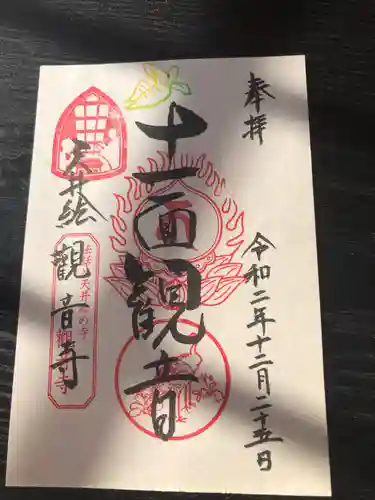 奉拝
令和二年十二月二十五日
十一面観音
天井絵
觀音寺